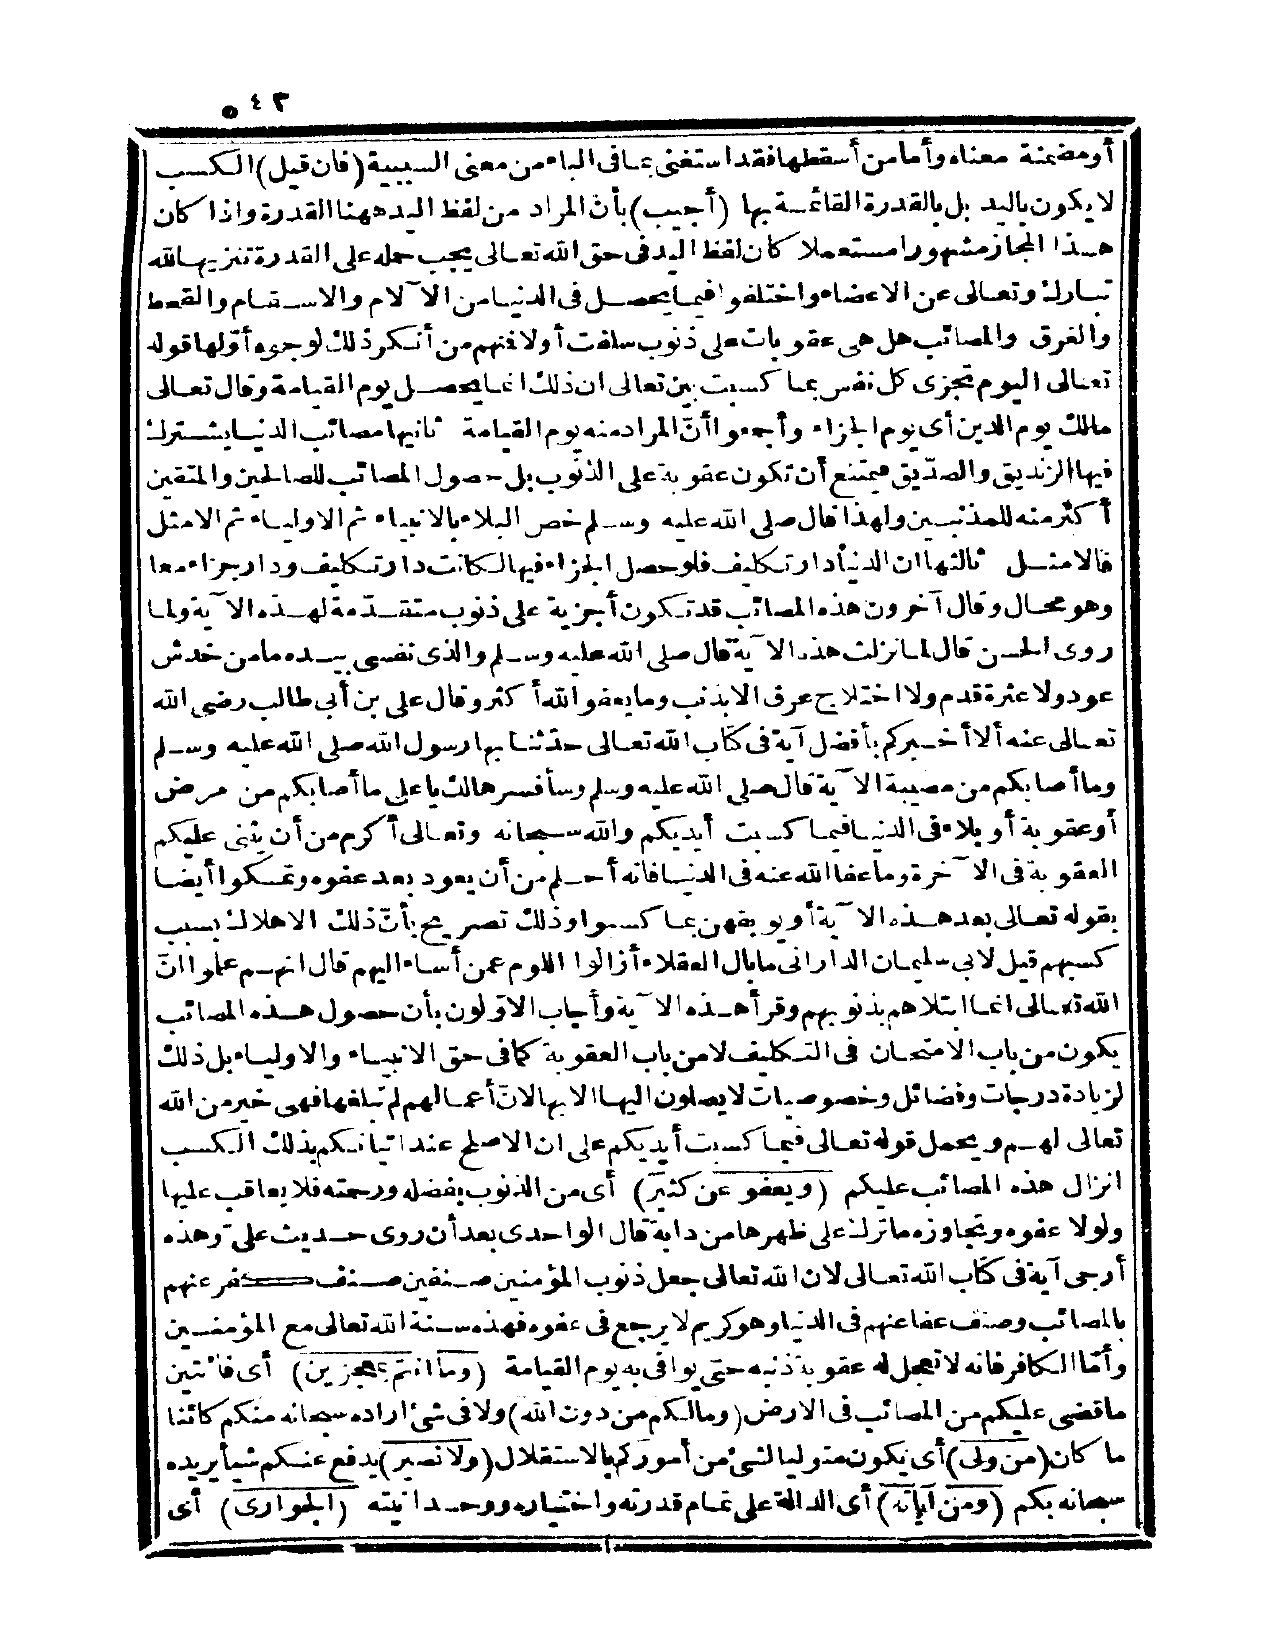 ٥٤٣
أو مضمنة معناه وأما من أسقطها فقد استغنى بما فى الباء من معنى السببية (فان قيل) الكسب
لا يكون باليد بل بالقدرة القائمة بها (أجيب) بأن المراد من لفظ اليد ههنا القدرة واذا كان
هذا المجاز مشهورا مستعملا كان لفظ اليد فى حق الله تعالى يجب حمله على القدرة تنزيها لله
تبارك وتعالى عن الاعضاء واختلفوا فيما يحصل فى الدنيا من الآلام والاسقام والقحط
والغرق والمصائب هل هى عقوبات على ذنوب سلفت أولا فنهم من أنكر ذلك لوجوه أولها قوله
تعالى اليوم تجزى كل نفس بما كسبت بين تعالى ان ذلك انما يحصل يوم القيامة وقال تعالى
مالك يوم الدين أى يوم الجزاء وأجمعوا أنّ المراد منه يوم القيامة ثانيها مصائب الدنيا يشترك
فيها الزنديق والصدّيق فيمتنع أن تكون عقوبة على الذنوب بل حصول المصائب للصالحين والمتقين
أكثر منه للمذنبين ولهذا قال صلى الله عليه وسلم خص البلاء بالانبياء ثم الاولياء ثم الامثل
فالامثل ثالثها ان الدنيا دار تكليف فلو حصل الجزاء فيها لكانت دار تكليف ودار جزاء معا
وهو محال وقال آخرون هذه المصائب قد تكون أجزية على ذنوب متقدّمة لهذه الآية ولما
روى الحسن قال لما نزلت هذه الآية قال صلى الله عليه وسلم والذى نفسى بيده ما من خدش
عود ولا عثرة قدم ولا اختلاج عرق الا بذنب وما يعفو الله أكثر وقال على بن أبى طالب رضى الله
تعالى عنه ألا أخبركم بأفضل آية فى كتاب الله تعالى حدثنا بها رسول الله صلى الله عليه وسلم
وما أصابكم من مصيبة الآية قال صلى الله عليه وسلم وسأفسرها لك يا على ما أصابكم من مرض
أو عقوبة أو بلاء فى الدنيا فيما كسبت أيديكم والله سبحانه وتعالى أكرم من أن يثنى عليكم
العقوبة فى الآخرة وما عفا الله عنه فى الدنيا فانه أحلم من أن يعود بعد عفوه وتمسكوا أيضا
بقوله تعالى بعد هذه الآية أو يوبقهن بما كسبوا وذلك تصريح بأنّ ذلك الاهلاك بسبب
كسبهم قيل لابى سليمان الدارانى ما بال العقلاء أزالوا اللوم عمن أساء اليهم قال انهم علموا انّ
الله تعالى انما ابتلاهم بذنوبهم وقرأ هذه الآية وأجاب الاوّلون بأن حصول هذه المصائب
يكون من باب الامتحان فى التكليف لا من باب العقوبة كما فى حق الانبياء والاولياء بل ذلك
لزيادة درجات وفضائل وخصوصيات لا يصلون اليها الا بها لانّ أعمالهم لم تبلغها فهى خير من الله
تعالى لهم ويحمل قوله تعالى فيما كسبت أيديكم على ان الاصلح عند اتيانكم بذلك الكسب
انزال هذه المصائب عليكم (ويعفو عن كثير) أى من الذنوب بفضله ورحمته فلا يعاقب عليها
ولولا عفوه وتجاوزه ما ترك على ظهرها من دابة قال الواحدى بعد أن روى حديث علىّ وهذه
أرجى آية فى كتاب الله تعالى لان الله تعالى جعل ذنوب المؤمنين صنفين صنف كفر عنهم
بالمصائب وصنف عفا عنهم فى الدنيا وهو كريم لا يرجع فى عفوه فهذه سنة الله تعالى مع المؤمنين
وأمّا الكافر فانه لا تعجل له عقوبة ذنبه حتى يوافى به يوم القيامة (وما انتم بمعجزين) أى فائتين
ما قضى عليكم من المصائب فى الارض (وما لكم من دون الله) ولا فى شئ اراده سبحانه منكم كائنا
ما كان (من ولى) أى يكون متوليا لشئ من أموركم بالاستقلال (ولا نصير) يدفع عنكم شيأ يريده
سبحانه بكم (ومن آياته) أى الدالة على تمام قدرته واختياره ووحدانيته (الجوارى) أى